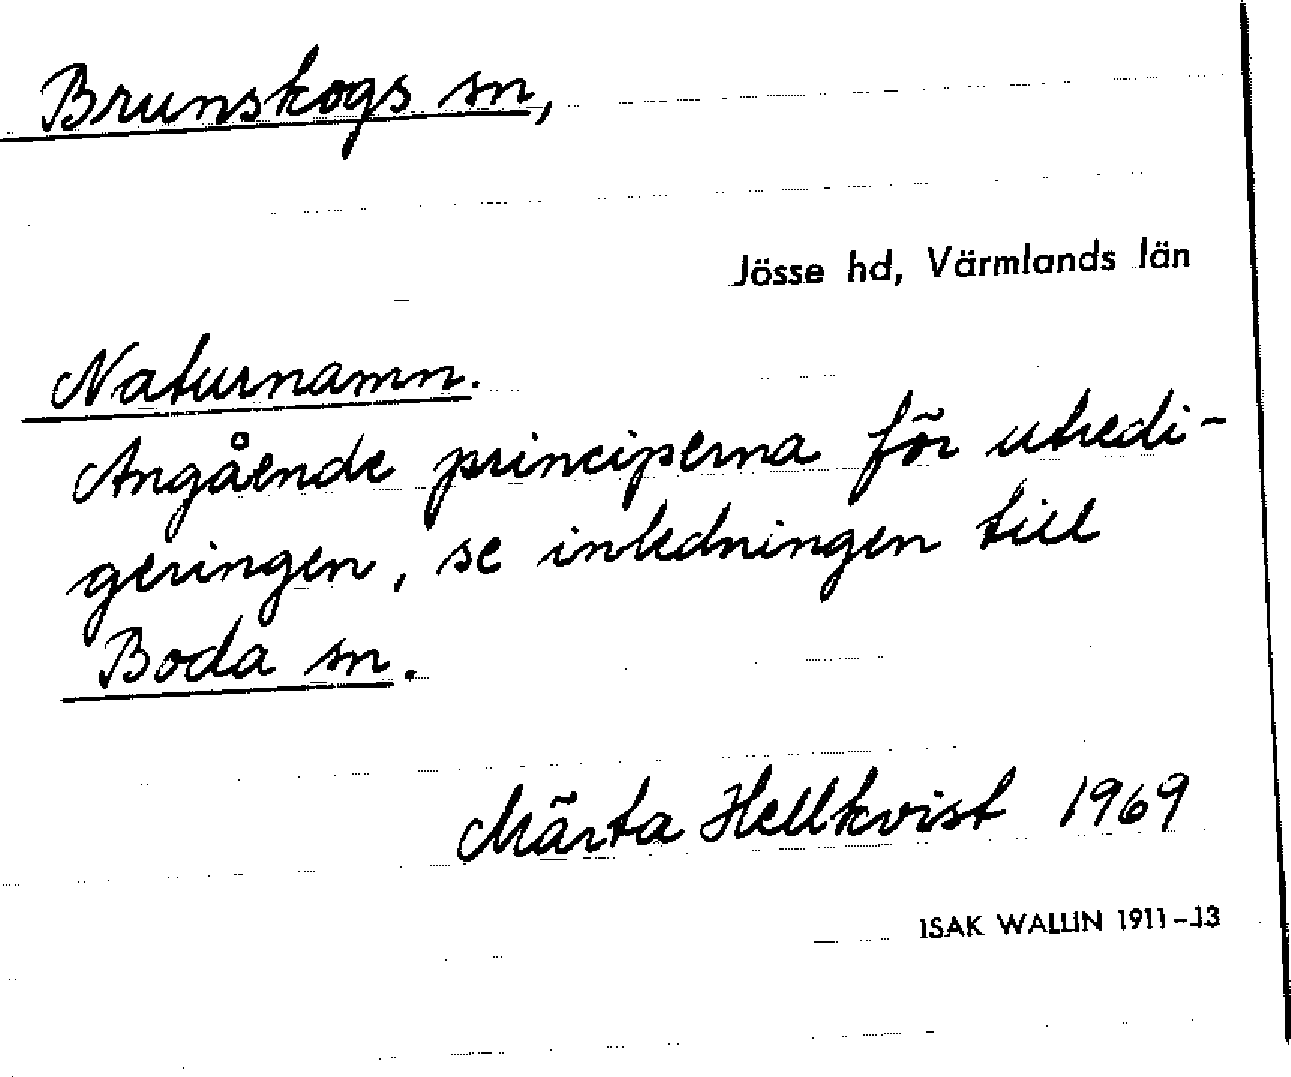 Brunskogs sn,
Jösse hd, Värmlands län
Naturnamn.
Angående principerna för utredi-
geringen, se inledningen till
Boda sn.
Märta Hellkvist 1969
ISAK WALLIN 1911-13